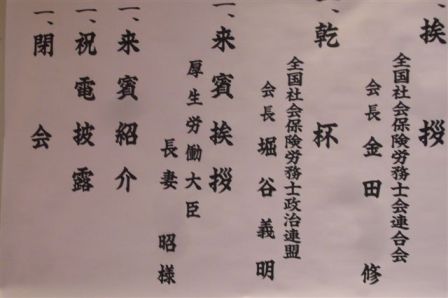 一、挨拶
全国社会保険労務士会連合会
会長 金田 修
一、乾杯
全国社会保険労務士政治連盟
会長 堀谷義明
一、来賓挨拶
厚生労働大臣
長妻 昭様
一、来賓紹介
一、祝電披露
一、閉会